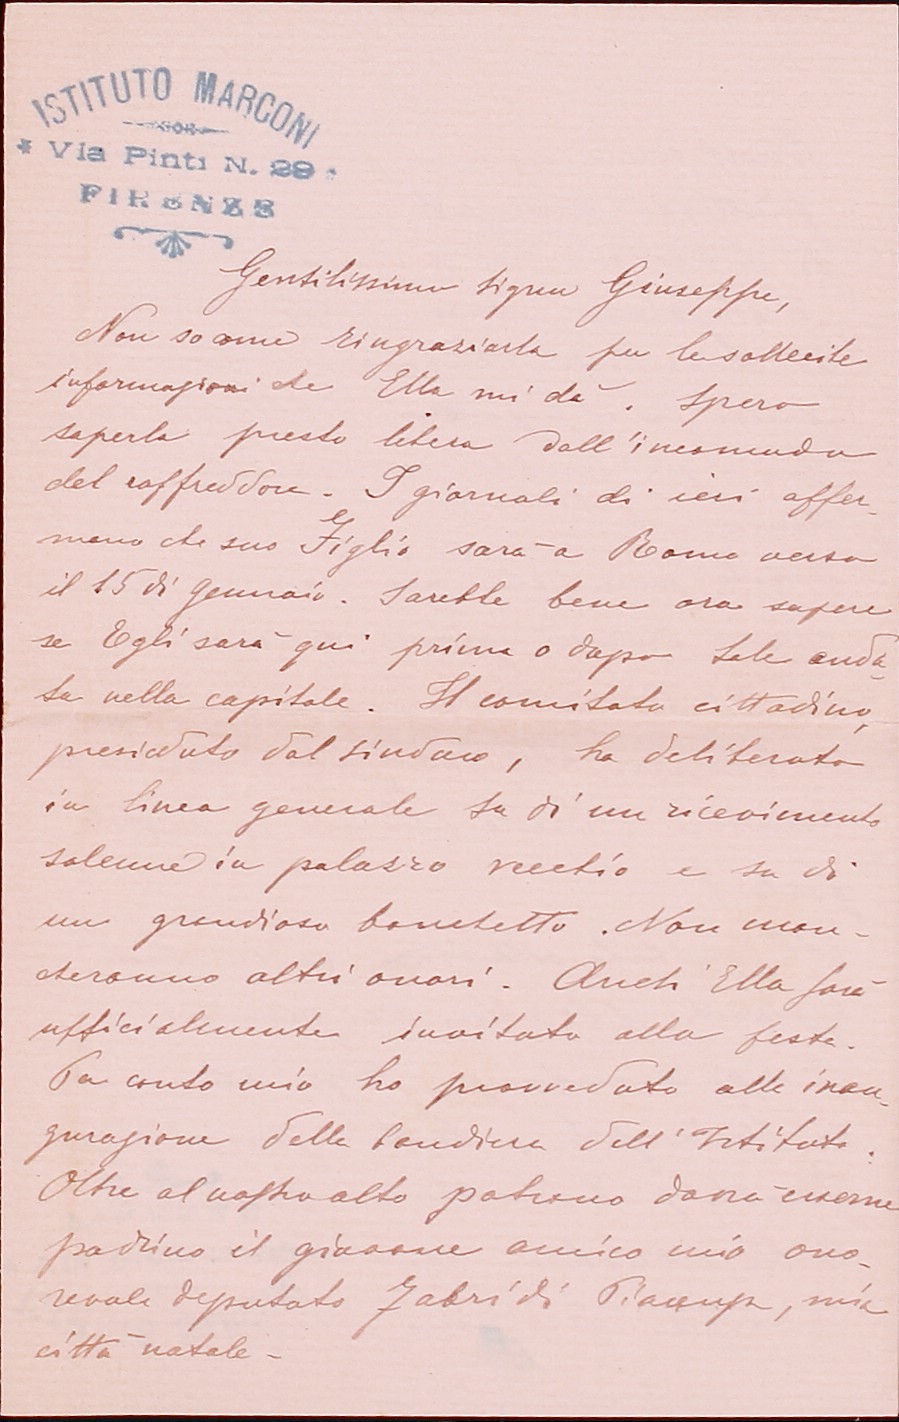 ISTITUTO MARCONI
Via Pinti N. 29
FIRENZE
Gentilissimo signor Giuseppe,
Non so come ringraziarla per le sollecite
informazioni che Ella mi dà. Spero
saperla presto libera dall'incomodo
del raffreddore. I giornali di ieri affer-
mano che suo Figlio sarà a Roma verso
il 15 di gennaio. Sarebbe bene ora sapere
se Egli sarà qui prima o dopo tale anda-
ta nella capitale. Il comitato cittadino,
presieduto dal sindaco, ha deliberato
in linea generale su di un ricevimento
solenne in palazzo vecchio e su di
un grandioso banchetto. Non man-
cheranno altri onori. Anch'Ella sarà
ufficialmente invitato alle feste.
Per conto mio ho provveduto alla inau-
gurazione della bandiera dell'Istituto.
Oltre al nostro alto patrono dovrà esserne
padrino il giovane amico mio ono-
revole deputato Fabri di Piacenza, mia
città natale -